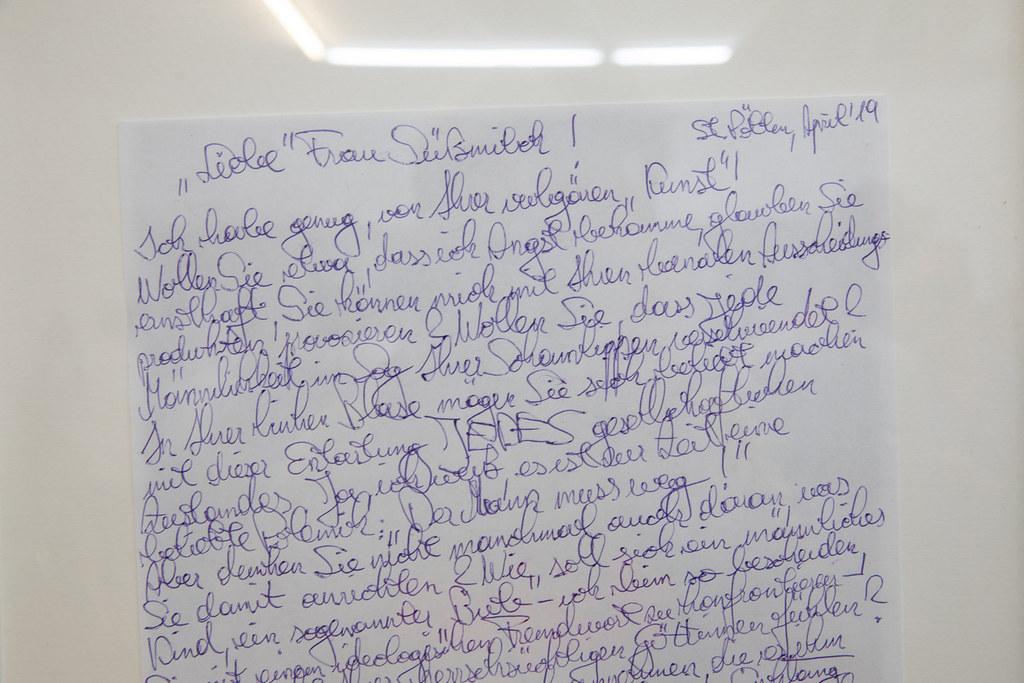 St. Pölten, April '19
„Liebe" Frau Süßmilch!
Ich habe genug, von Ihrer vulgären „Kunst"!
Wollen Sie etwa, dass ich Angst bekomme, glauben Sie
ernsthaft, Sie können mich mit Ihren banalen Ausscheidungs-
produkten, provozieren? Wollen Sie, dass jede
Männlichkeit im Sog Ihrer Schamlippen verschwindet?
In Ihrer linken Blase mögen Sie sich beliebt machen
mit dieser Entartung JEDES gesellschaftlichen
Zustandes. Ja, ich weiß, es ist zur Zeit eine
beliebte Polemik: „Der Mann muss weg!"
Aber denken Sie nicht manchmal auch daran, was
Sie damit anrichten? Wie, soll sich ein männliches
Kind, ein sogenannter Bube – ich bin so bescheiden,
Sie mit einem ideologischen Fremdwort zu konfrontieren –!
herrschsüchtigen Göttinnen fühlen!?
die